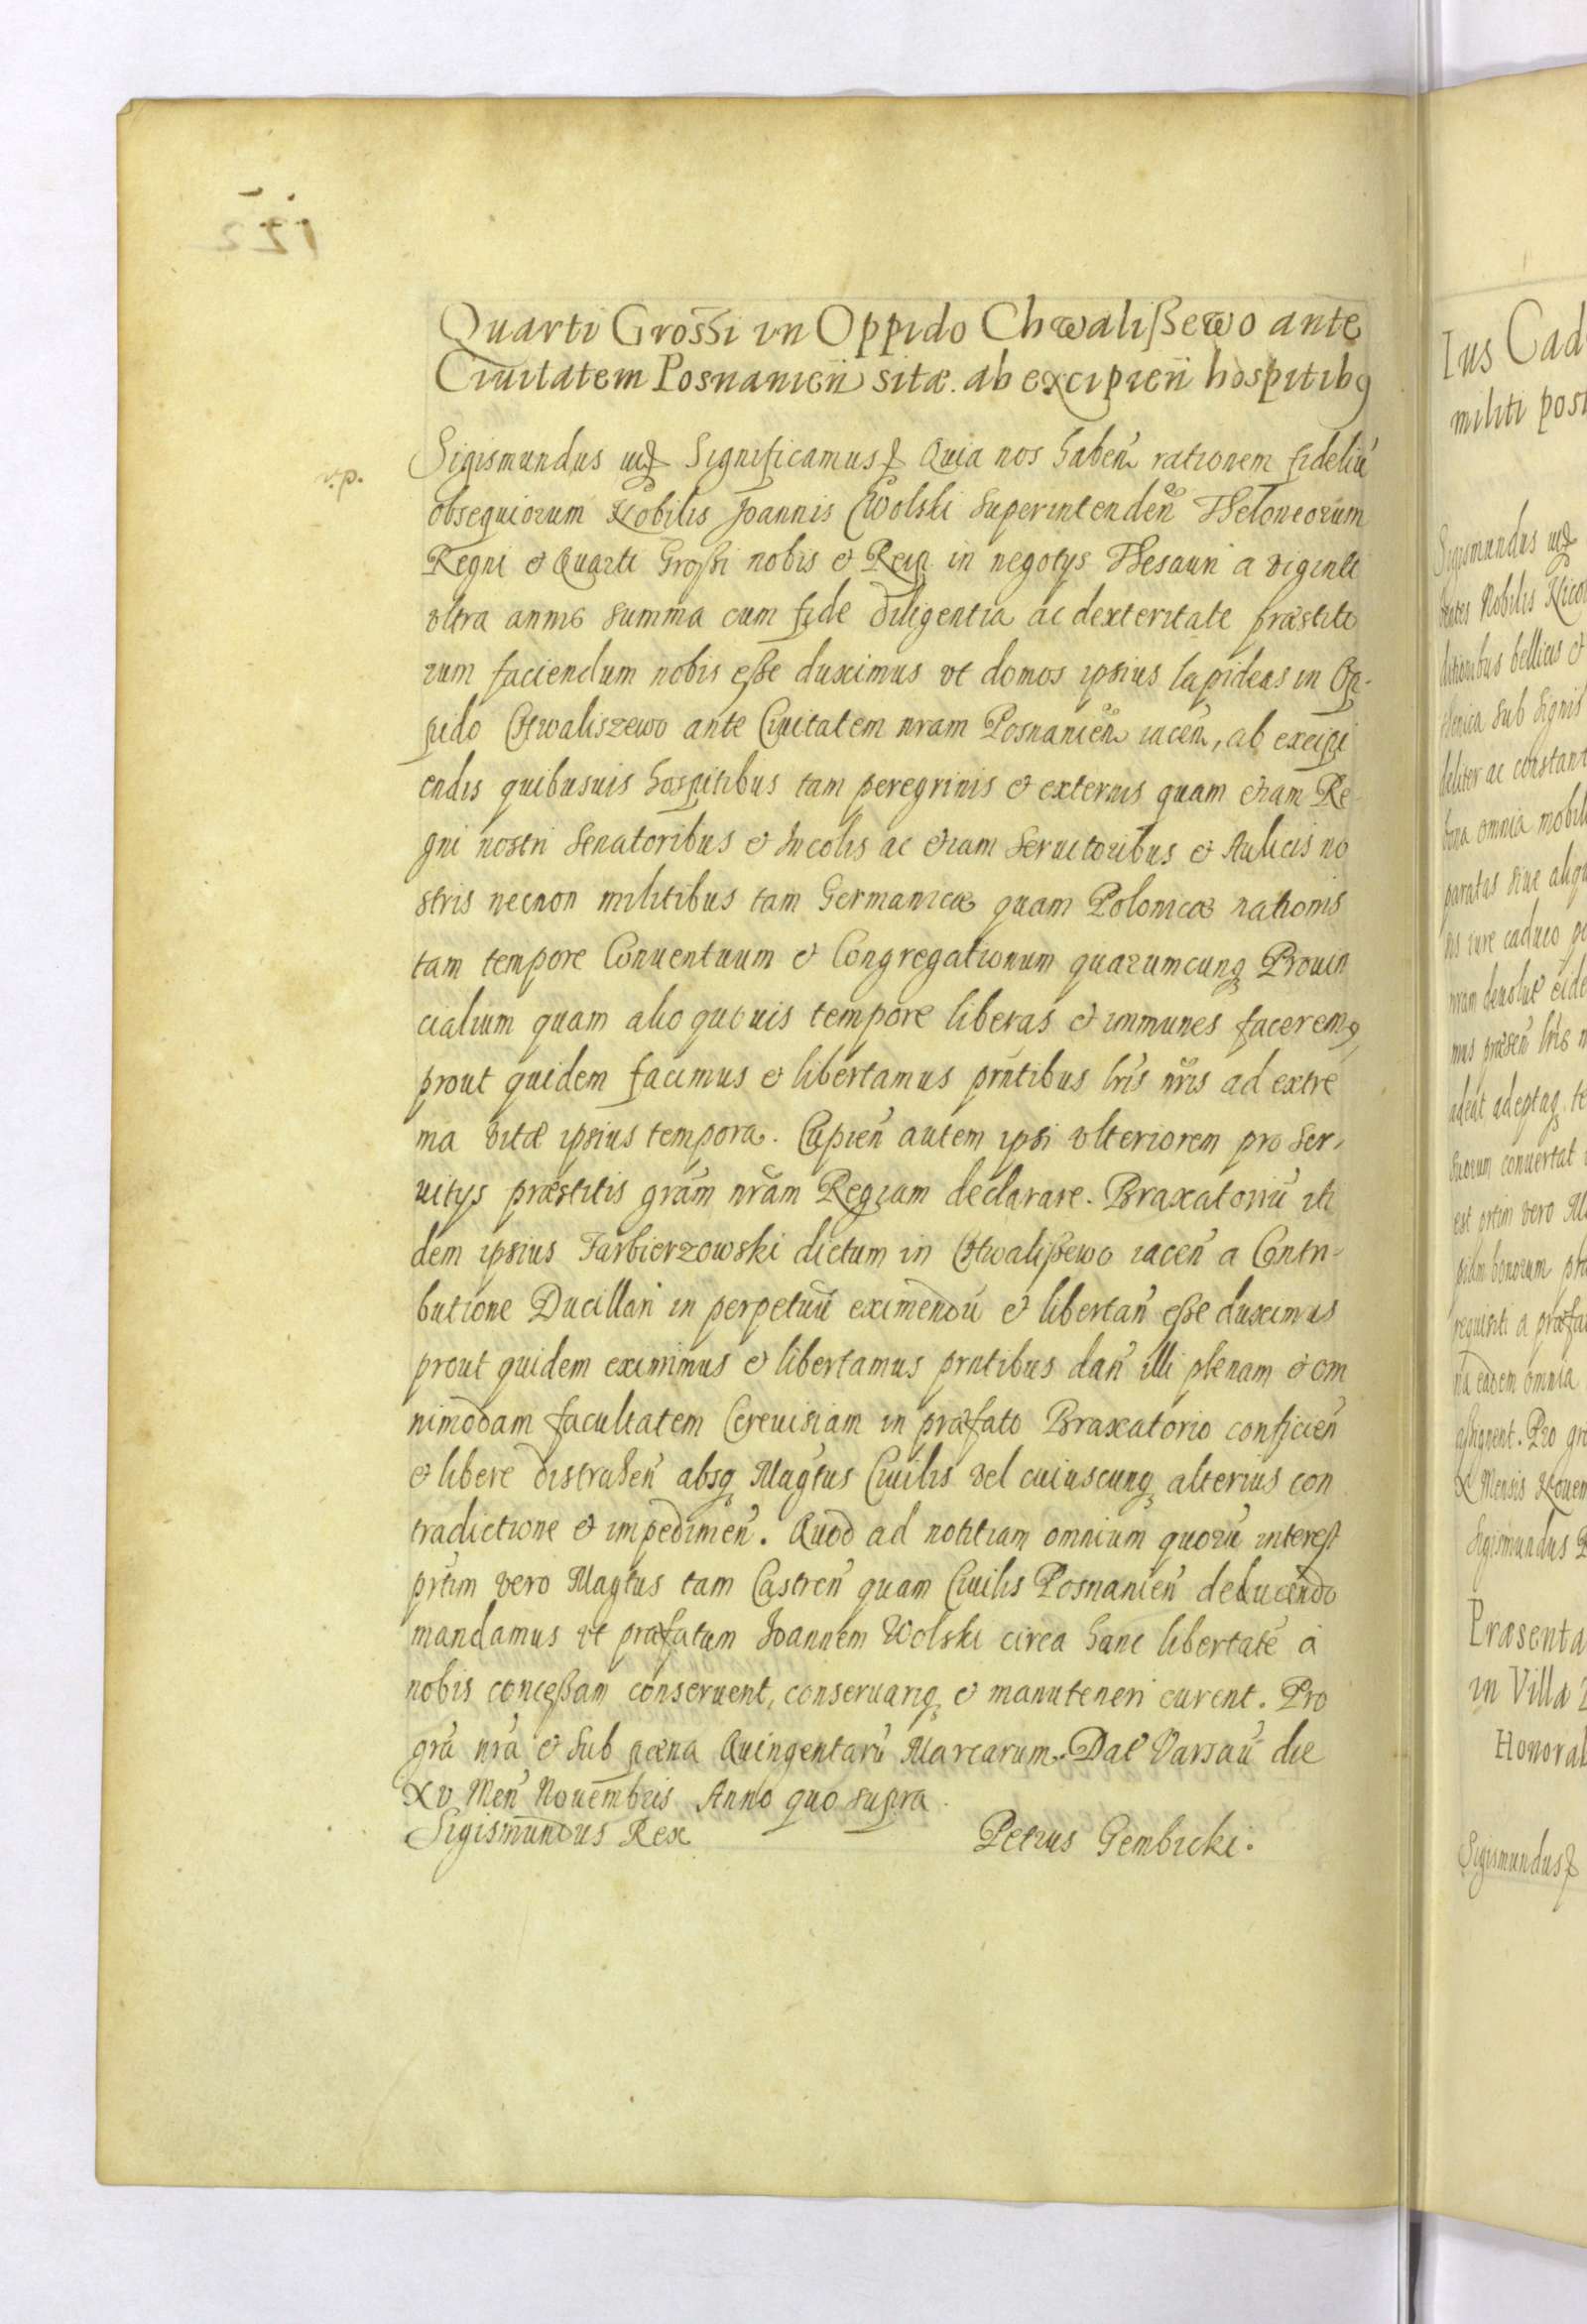 Quarti Grossi in Oppido Chwalißewo ante
Ciuitatem Posnanień sitæ. ab excipień hospitibꝯ
v.p.
Sigismundus Significamus Quia nos habeń rationem fideliū
obsequiorum Nobilis Joannis Wolski Superintendeń Theloneorum
Regni et Quarti Großi nobis et Reip. in negotys Thesauri a viginti
vltra annis summa cum fide diligentia ac dexteritate præstito
rum faciendum nobis eße duximus vt domos ipsius lapideas in Op-
pido Chwaliszewo ante Ciuitatem nram Posnanień iaceń, ab excipi
endis quibusuis hospitibus tam peregrinis et externis quam etiam Re-
gni nostri Senatoribus et Incolis ac etiam Seruitoribus et Aulicis no
stris necnon militibus tam Germanicæ quam Polonicæ nationis
tam tempore Conuentuum et Congregationum quarumcunq Prouin
cialium quam alio quouis tempore liberas et immunes faceremꝯ,
prout quidem facimus et libertamus pntibus lris nris ad extre
ma vitæ ipsius tempora. Cupień autem ipsi vlteriorem pro Ser-
uitys præstitis grām nrām Regiam declarare. Braxatoriū iti
dem ipsius Farbierzowski dictum in Chwalißewo iaceń a Contri-
butione Ducillari in perpetuū eximendū et libertań eße duximus
prout quidem eximimus et libertamus pntibus dań illi plenam et om
nimodam facultatem Cereuisiam in præfato Braxatorio conficień
et libere distraheń absq Magtus Ciuilis vel cuiuscunq alterius con
tradictione et impedimeń. Quod ad notitiam omnium quorū interest
prtim vero Magtus tam Castreń quam Ciuilis Posnanień deducendo
mandamus vt præfatum Joannem Wolski circa hanc libertatē a
nobis conceßam conseruent, conseruariq et manuteneri curent. Pro
grā nrā et sub pœna Quingentarū Marcarum. Dat Varsau die
xv Meń Nouembris Anno quo supra.
Sigismundus Rex
Petrus Gembicki.
Ius Cad
militi post
Sigismundus
Nobilis Nico
bellicis et
sub signis
ac constant
bona omnia mobili
paratas siue aliqu
iure caduco
adeptaq te
conuertat
est prtim vero Ma
bonorum
requisiti a præfa
eadem omnia
aßignent. Pro gra
x Mensis Nouem
Sigismundus R
Præsenta
in Villa
Honoral
Sigismundus